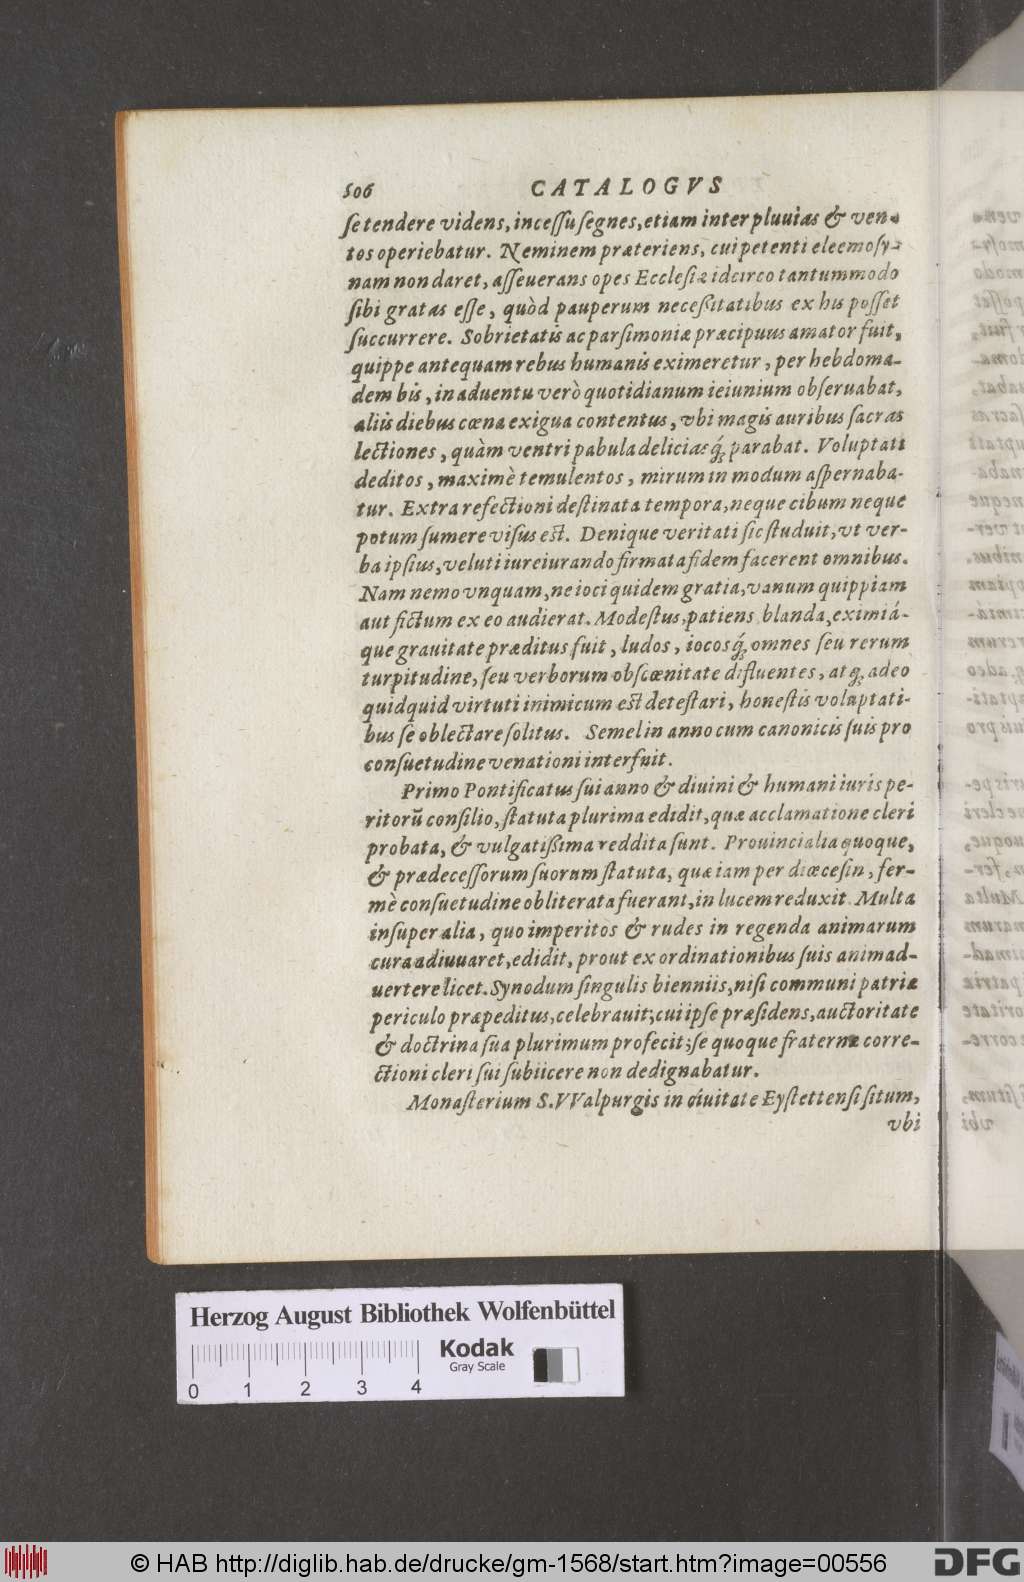 506 CATALOGVS
ſe tendere videns, inceſſu ſegnes, etiam inter pluuias & ven-
tos operiebatur. Neminem præteriens, cui petenti eleemoſy-
nam non daret, aſſeuerans opes Eccleſiæ idcirco tantummodo
ſibi gratas eſſe, quòd pauperum neceſſitatibus ex his poſſet
ſuccurrere. Sobrietatis ac parſimoniæ præcipuus amator fuit,
quippe antequam rebus humanis eximeretur, per hebdoma-
dem bis, in aduentu verò quotidianum ieiunium obſeruabat,
aliis diebus cœna exigua contentus, vbi magis auribus ſacras
lectiones, quàm ventri pabula deliciasq́; parabat. Voluptati
deditos, maximè temulentos, mirum in modum aſpernaba-
tur. Extra refectioni deſtinata tempora, neque cibum neque
potum ſumere viſus eſt. Denique veritati ſic ſtuduit, vt ver-
ba ipſius, veluti iureiurando firmata fidem facerent omnibus.
Nam nemo vnquam, ne ioci quidem gratia, vanum quippiam
aut fictum ex eo audierat. Modeſtus, patiens, blanda, eximiá-
que grauitate præditus fuit, ludos, iocosq́; omnes ſeu rerum
turpitudine, ſeu verborum obſcœnitate difluentes, atq; adeo
quidquid virtuti inimicum eſt deteſtari, honeſtis voluptati-
bus ſe oblectare ſolitus. Semel in anno cum canonicis ſuis pro
conſuetudine venationi interfuit.
Primo Pontificatus ſui anno & diuini & humani iuris pe-
ritorū conſilio, ſtatuta plurima edidit, quæ acclamatione cleri
probata, & vulgatiſſima reddita ſunt. Prouincialia quoque,
& prædeceſſorum ſuorum ſtatuta, quæ iam per diœceſin, fer-
mè conſuetudine obliterata fuerant, in lucem reduxit. Multa
inſuper alia, quo imperitos & rudes in regenda animarum
cura adiuuaret, edidit, prout ex ordinationibus ſuis animad-
uertere licet. Synodum ſingulis bienniis, niſi communi patriæ
periculo præpeditus, celebrauit; cui ipſe præſidens, auctoritate
& doctrina ſua plurimum profecit; ſe quoque fraternæ corre-
ctioni cleri ſui ſubiicere non dedignabatur.
Monaſterium S. VValpurgis in ciuitate Eyſtettenſi ſitum,
vbi
Herzog August Bibliothek Wolfenbüttel
Kodak
Gray Scale
0 1 2 3 4
© HAB http://diglib.hab.de/drucke/gm-1568/start.htm?image=00556
DFG